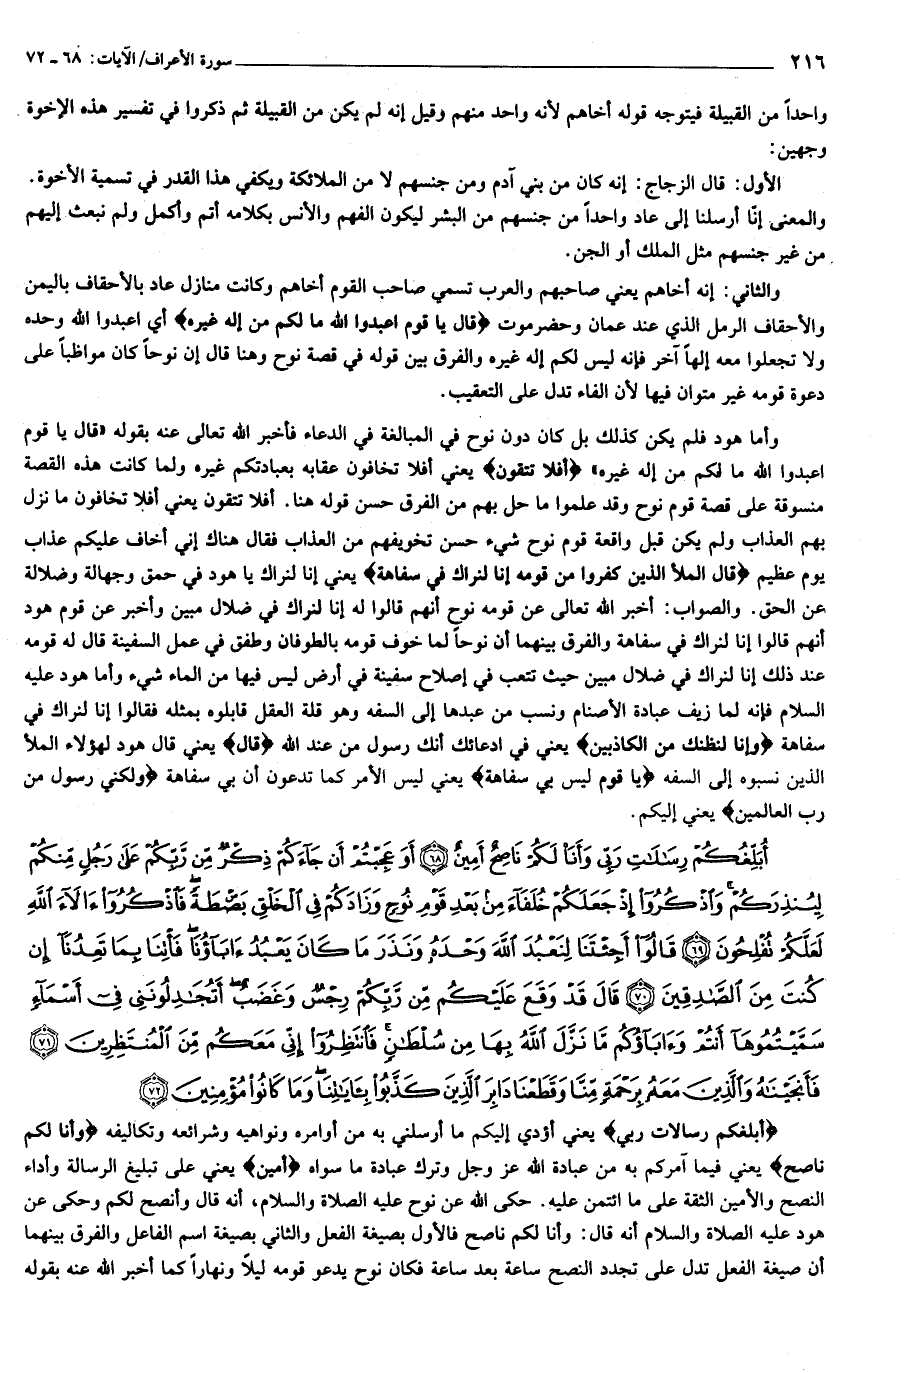 ٢١٦ سورة الأعراف/ الآيات: ٦٨ ـ ٧٢
واحداً من القبيلة فيتوجه قوله أخاهم لأنه واحد منهم وقيل إنه لم يكن من القبيلة ثم ذكروا في تفسير هذه الإخوة
وجهين:
الأول: قال الزجاج: إنه كان من بني آدم ومن جنسهم لا من الملائكة ويكفي هذا القدر في تسمية الأخوة.
والمعنى إنّا أرسلنا إلى عاد واحداً من جنسهم من البشر ليكون الفهم والأنس بكلامه أتم وأكمل ولم نبعث إليهم
من غير جنسهم مثل الملك أو الجن.
والثاني: إنه أخاهم يعني صاحبهم والعرب تسمي صاحب القوم أخاهم وكانت منازل عاد بالأحقاف باليمن
والأحقاف الرمل الذي عند عمان وحضرموت ﴿قال يا قوم اعبدوا الله ما لكم من إله غيره﴾ أي اعبدوا الله وحده
ولا تجعلوا معه إلهاً آخر فإنه ليس لكم إله غيره والفرق بين قوله في قصة نوح وهنا قال إن نوحاً كان مواظباً على
دعوة قومه غير متوان فيها لأن الفاء تدل على التعقيب.
وأما هود فلم يكن كذلك بل كان دون نوح في المبالغة في الدعاء فأخبر الله تعالى عنه بقوله «قال يا قوم
اعبدوا الله ما لكم من إله غيره» ﴿أفلا تتقون﴾ يعني أفلا تخافون عقابه بعبادتكم غيره ولما كانت هذه القصة
منسوقة على قصة قوم نوح وقد علموا ما حل بهم من الفرق حسن قوله هنا. أفلا تتقون يعني أفلا تخافون ما نزل
بهم العذاب ولم يكن قبل واقعة قوم نوح شيء حسن تخويفهم من العذاب فقال هناك إني أخاف عليكم عذاب
يوم عظيم ﴿قال الملأ الذين كفروا من قومه إنا لنراك في سفاهة﴾ يعني إنا لنراك يا هود في حمق وجهالة وضلالة
عن الحق. والصواب: أخبر الله تعالى عن قومه نوح أنهم قالوا له إنا لنراك في ضلال مبين وأخبر عن قوم هود
أنهم قالوا إنا لنراك في سفاهة والفرق بينهما أن نوحاً لما خوف قومه بالطوفان وطفق في عمل السفينة قال له قومه
عند ذلك إنا لنراك في ضلال مبين حيث تتعب في إصلاح سفينة في أرض ليس فيها من الماء شيء وأما هود عليه
السلام فإنه لما زيف عبادة الأصنام ونسب من عبدها إلى السفه وهو قلة العقل قابلوه بمثله فقالوا إنا لنراك في
سفاهة ﴿وإنا لنظنك من الكاذبين﴾ يعني في ادعائك أنك رسول من عند الله ﴿قال﴾ يعني قال هود لهؤلاء الملأ
الذين نسبوه إلى السفه ﴿يا قوم ليس بي سفاهة﴾ يعني ليس الأمر كما تدعون أن بي سفاهة ﴿ولكني رسول من
رب العالمين﴾ يعني إليكم.
أُبَلِّغُكُمْ رِسَٰلَٰتِ رَبِّى وَأَنَا۠ لَكُمْ نَاصِحٌ أَمِينٌ ﴿٦٨﴾ أَوَعَجِبْتُمْ أَن جَآءَكُمْ ذِكْرٌ مِّن رَّبِّكُمْ عَلَىٰ رَجُلٍ مِّنكُمْ
لِيُنذِرَكُمْ ۚ وَٱذْكُرُوٓا۟ إِذْ جَعَلَكُمْ خُلَفَآءَ مِنۢ بَعْدِ قَوْمِ نُوحٍ وَزَادَكُمْ فِى ٱلْخَلْقِ بَصْۜطَةً ۖ فَٱذْكُرُوٓا۟ ءَالَآءَ ٱللَّهِ
لَعَلَّكُمْ تُفْلِحُونَ ﴿٦٩﴾ قَالُوٓا۟ أَجِئْتَنَا لِنَعْبُدَ ٱللَّهَ وَحْدَهُۥ وَنَذَرَ مَا كَانَ يَعْبُدُ ءَابَآؤُنَا ۖ فَأْتِنَا بِمَا تَعِدُنَآ إِن
كُنتَ مِنَ ٱلصَّٰدِقِينَ ﴿٧٠﴾ قَالَ قَدْ وَقَعَ عَلَيْكُم مِّن رَّبِّكُمْ رِجْسٌ وَغَضَبٌ ۖ أَتُجَٰدِلُونَنِى فِىٓ أَسْمَآءٍ
سَمَّيْتُمُوهَآ أَنتُمْ وَءَابَآؤُكُم مَّا نَزَّلَ ٱللَّهُ بِهَا مِن سُلْطَٰنٍ ۚ فَٱنتَظِرُوٓا۟ إِنِّى مَعَكُم مِّنَ ٱلْمُنتَظِرِينَ ﴿٧١﴾
فَأَنجَيْنَٰهُ وَٱلَّذِينَ مَعَهُۥ بِرَحْمَةٍ مِّنَّا وَقَطَعْنَا دَابِرَ ٱلَّذِينَ كَذَّبُوا۟ بِـَٔايَٰتِنَا ۖ وَمَا كَانُوا۟ مُؤْمِنِينَ ﴿٧٢﴾
﴿أبلغكم رسالات ربي﴾ يعني أؤدي إليكم ما أرسلني به من أوامره ونواهيه وشرائعه وتكاليفه ﴿وأنا لكم
ناصح﴾ يعني فيما آمركم به من عبادة الله عز وجل وترك عبادة ما سواه ﴿أمين﴾ يعني على تبليغ الرسالة وأداء
النصح والأمين الثقة على ما ائتمن عليه. حكى الله عن نوح عليه الصلاة والسلام، أنه قال وأنصح لكم وحكى عن
هود عليه الصلاة والسلام أنه قال: وأنا لكم ناصح فالأول بصيغة الفعل والثاني بصيغة اسم الفاعل والفرق بينهما
أن صيغة الفعل تدل على تجدد النصح ساعة بعد ساعة فكان نوح يدعو قومه ليلاً ونهاراً كما أخبر الله عنه بقوله